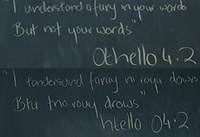 "I understand a fury in your words
But not your words"
Othello 4.2
"I tandersund faruy ni royu dowrs
Btu tno rouy drows"
htello 04.2